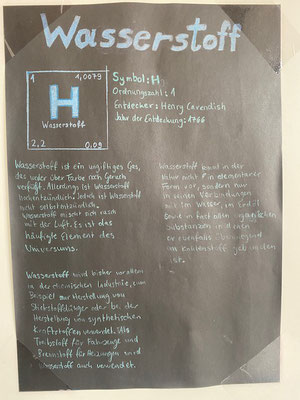 Wasserstoff
1 1,0079
H
Wasserstoff
2,2 0,09
Symbol: H
Ordnungszahl: 1
Entdecker: Henry Cavendish
Jahr der Entdeckung: 1766
Wasserstoff ist ein ungiftiges Gas,
das weder über Farbe noch Geruch
verfügt. Allerdings ist Wasserstoff
hochentzündlich, jedoch ist Wasserstoff
nicht selbstentzündlich.
Wasserstoff mischt sich rasch
mit der Luft. Es ist das
häufigste Element des
Universums.
Wasserstoff wird bisher vor allem
in der chemischen Industrie, zum
Beispiel zur Herstellung von
Stickstoffdünger oder bei der
Herstellung von synthetischen
Kraftstoffen verwendet. Als
Treibstoff für Fahrzeuge und
Brennstoff für Heizungen wird
Wasserstoff auch verwendet.
Wasserstoff kommt in der
Natur nicht in elementarer
Form vor, sondern nur
in seinen Verbindungen
wie im Wasser, im Erdöl
sowie in fast allen organischen
Substanzen in denen
er ebenfalls überwiegend
an Kohlenstoff gebunden
ist.